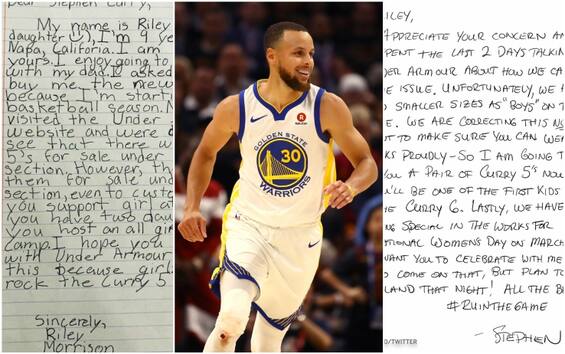 Dear Stephen Curry,
My name is Riley
daughter
), I'm 9 ye
Napa, Califoria. I am
yours. I enjoy going to
with my dad. I asked
buy me the new
because I'm starti
basketball season. M
visited the Under
website and were d
see that there w
5's for sale under
section. However, th
them for sale und
section, even to custo
you support girl at
you have two daug
you host an all gi
camp. I hope you
with Under Armour
this because girl
rock the Curry 5
Sincerely,
Riley
Morrison
GOLDEN STATE
30
WARRIORS
ILEY,
APPRECIATE YOUR CONCERN AN
PENT THE LAST 2 DAYS TALKIN
ER ARMOUR ABOUT HOW WE CA
E ISSUE. UNFORTUNATELY, WE H
SMALLER SIZES AS "BOYS" ON T
E. WE ARE CORRECTING THIS NO
T TO MAKE SURE YOU CAN WEA
KS PROUDLY - SO I AM GOING T
OU A PAIR OF CURRY 5'S NOW
'LL BE ONE OF THE FIRST KIDS
E CURRY 6. LASTLY, WE HAVE
NG SPECIAL IN THE WORKS FOR
TIONAL WOMENS DAY ON MARCH
WANT YOU TO CELEBRATE WITH ME
O COME ON THAT, BUT PLAN TO
LAND THAT NIGHT! ALL THE BE
#RUINTHEGAME
- STEPHEN
D/TWITTER